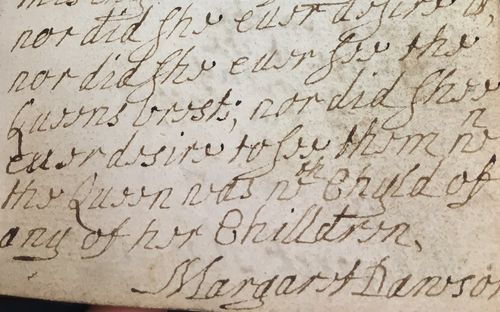 nor did she ever desire it,
nor did she ever see the
Queens brests; nor did shee
ever desire to see them wn
the Queen was wth Chyld of
any of her Chilldren.
Margaret Dawson